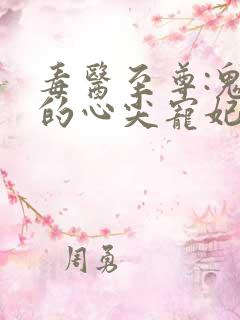 毒醫至尊:鬼
的心尖寵妃
周勇